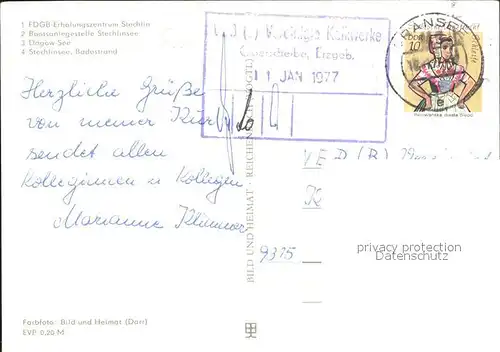 1 FDGB-Erholungszentrum Stechlin
2 Bootsanlegestelle Stechlinsee
3 Dagow-See
4 Stechlinsee, Badestrand
Herzliche Grüße
von meiner Kur
sendet allen
Kolleginnen u. Kollegen
Marianne
VEB (B) Vereinigte Kalkwerke
Oberscheibe, Erzgeb.
11. JAN 1977
DDR
10
VEB (B)
K
9315
BILD UND HEIMAT REICHENBACH (VOGTL)
privacy protection
Datenschutz
Farbfoto: Bild und Heimat (Darr)
EVP 0,20 M